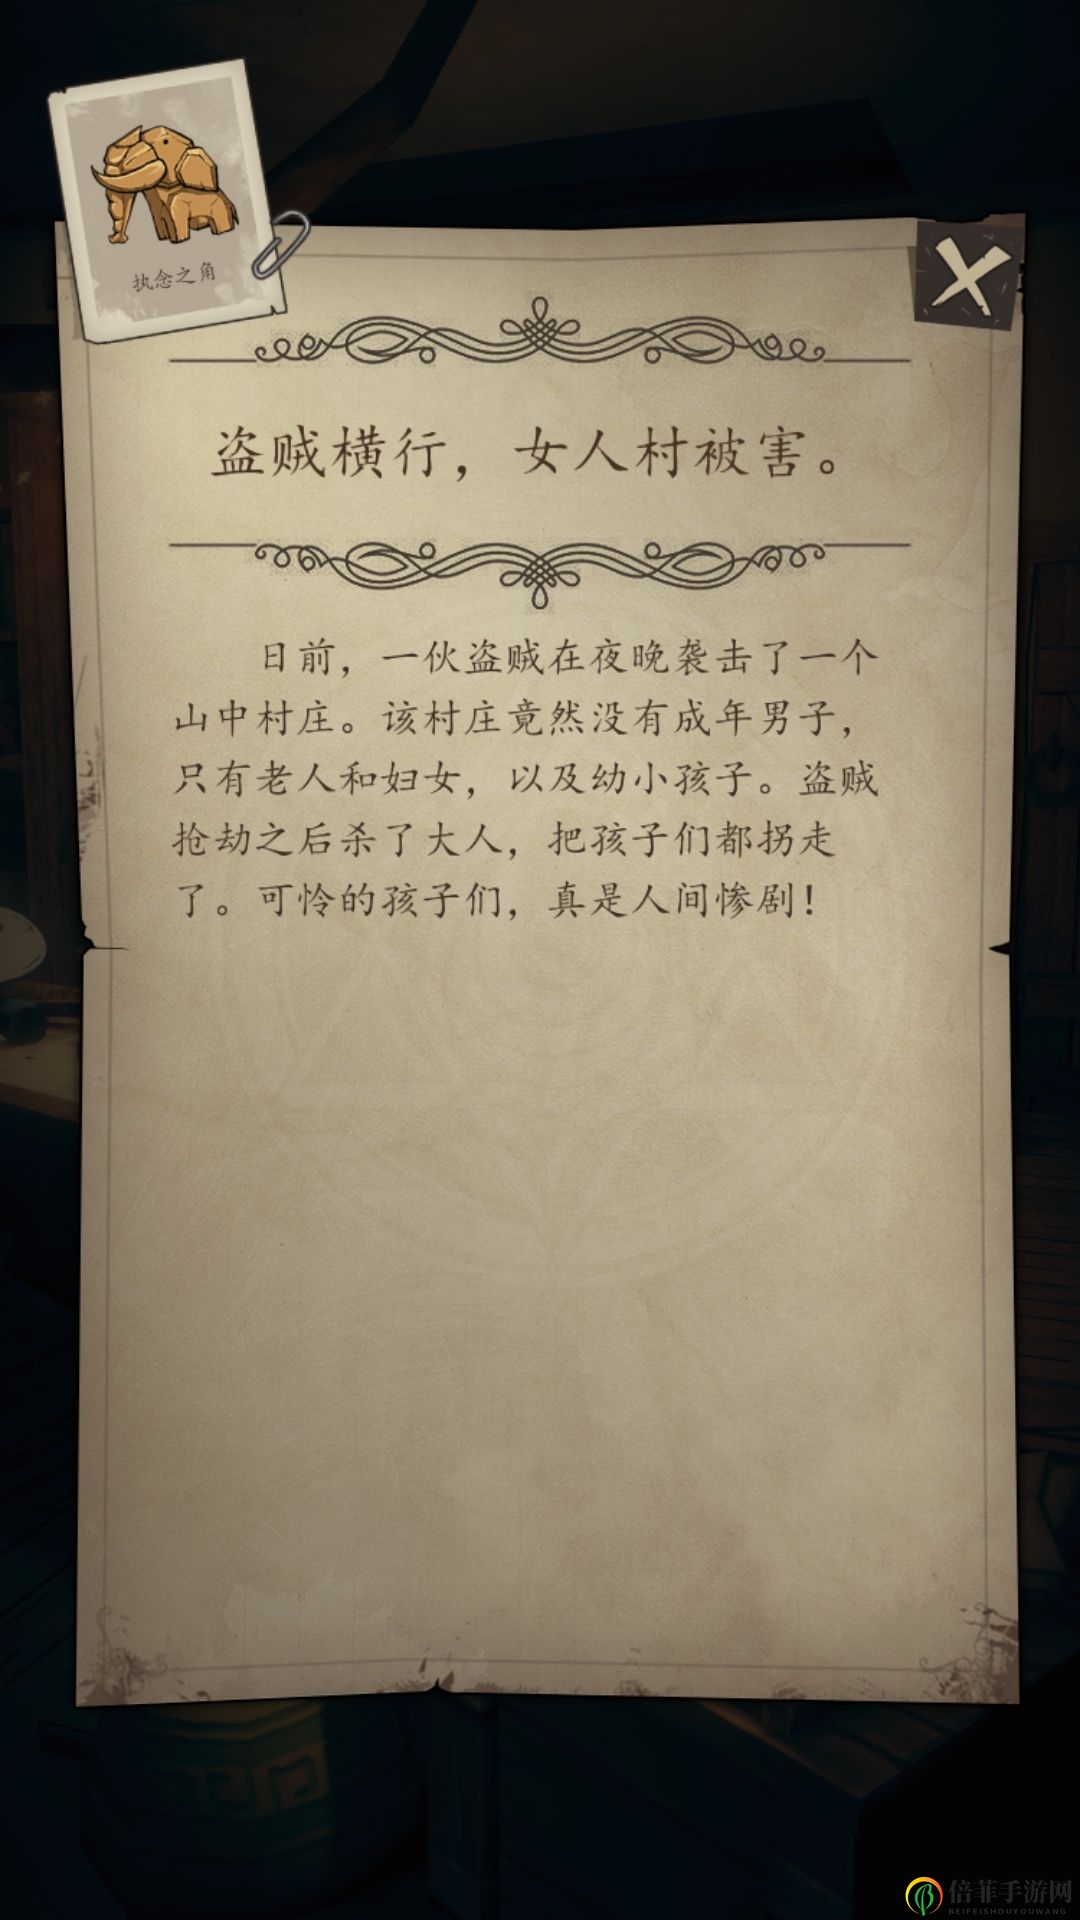 执念之角
盗贼横行，女人村被害。
日前，一伙盗贼在夜晚袭击了一个
山中村庄。该村庄竟然没有成年男子，
只有老人和妇女，以及幼小孩子。盗贼
抢劫之后杀了大人，把孩子们都拐走
了。可怜的孩子们，真是人间惨剧！
倍菲手游网
BEIFEISHOUYOUWANG